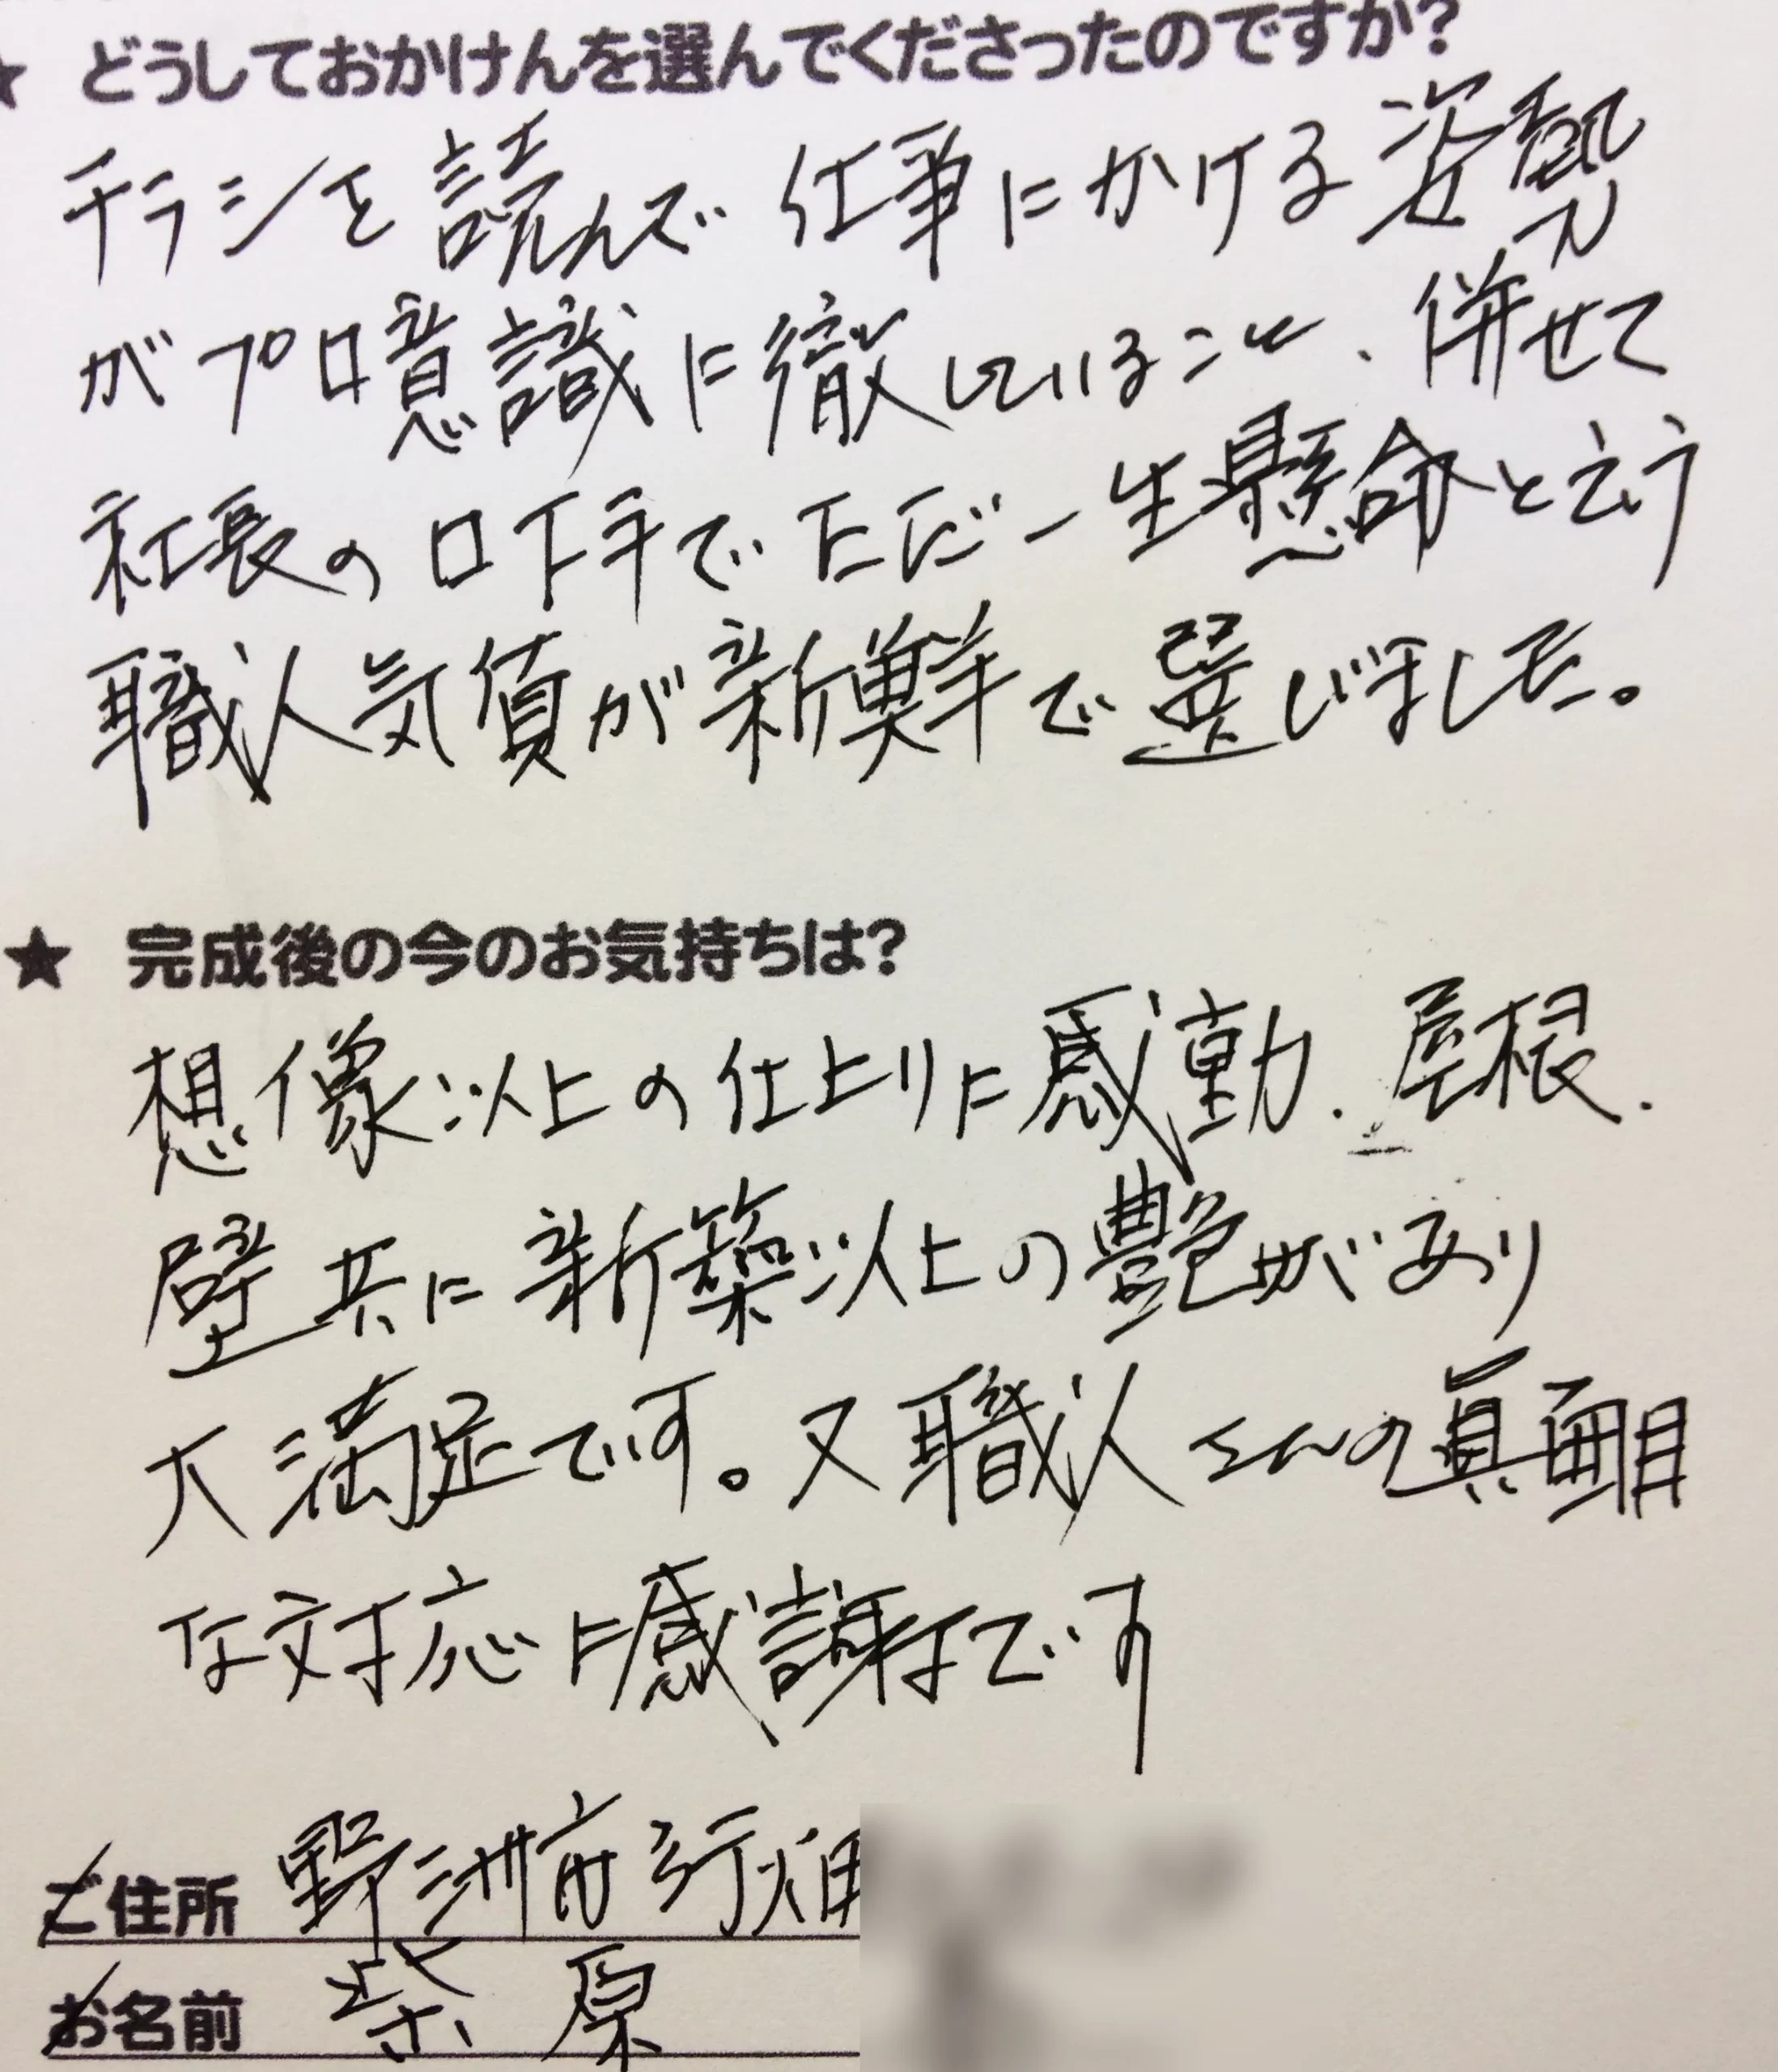 ★ どうしておかけんを選んでくださったのですか?
チラシを読んで仕事にかける姿勢
がプロ意識に徹していること、併せて
社長の口下手でただ一生懸命と云う
職人気質が新鮮で選びました。
★ 完成後の今のお気持ちは?
想像以上の仕上りに感動、屋根、
壁共に新築以上の艶があり
大満足です。又職人さんの真面目
な対応に感謝です
ご住所 野洲市行畑
お名前 柴原